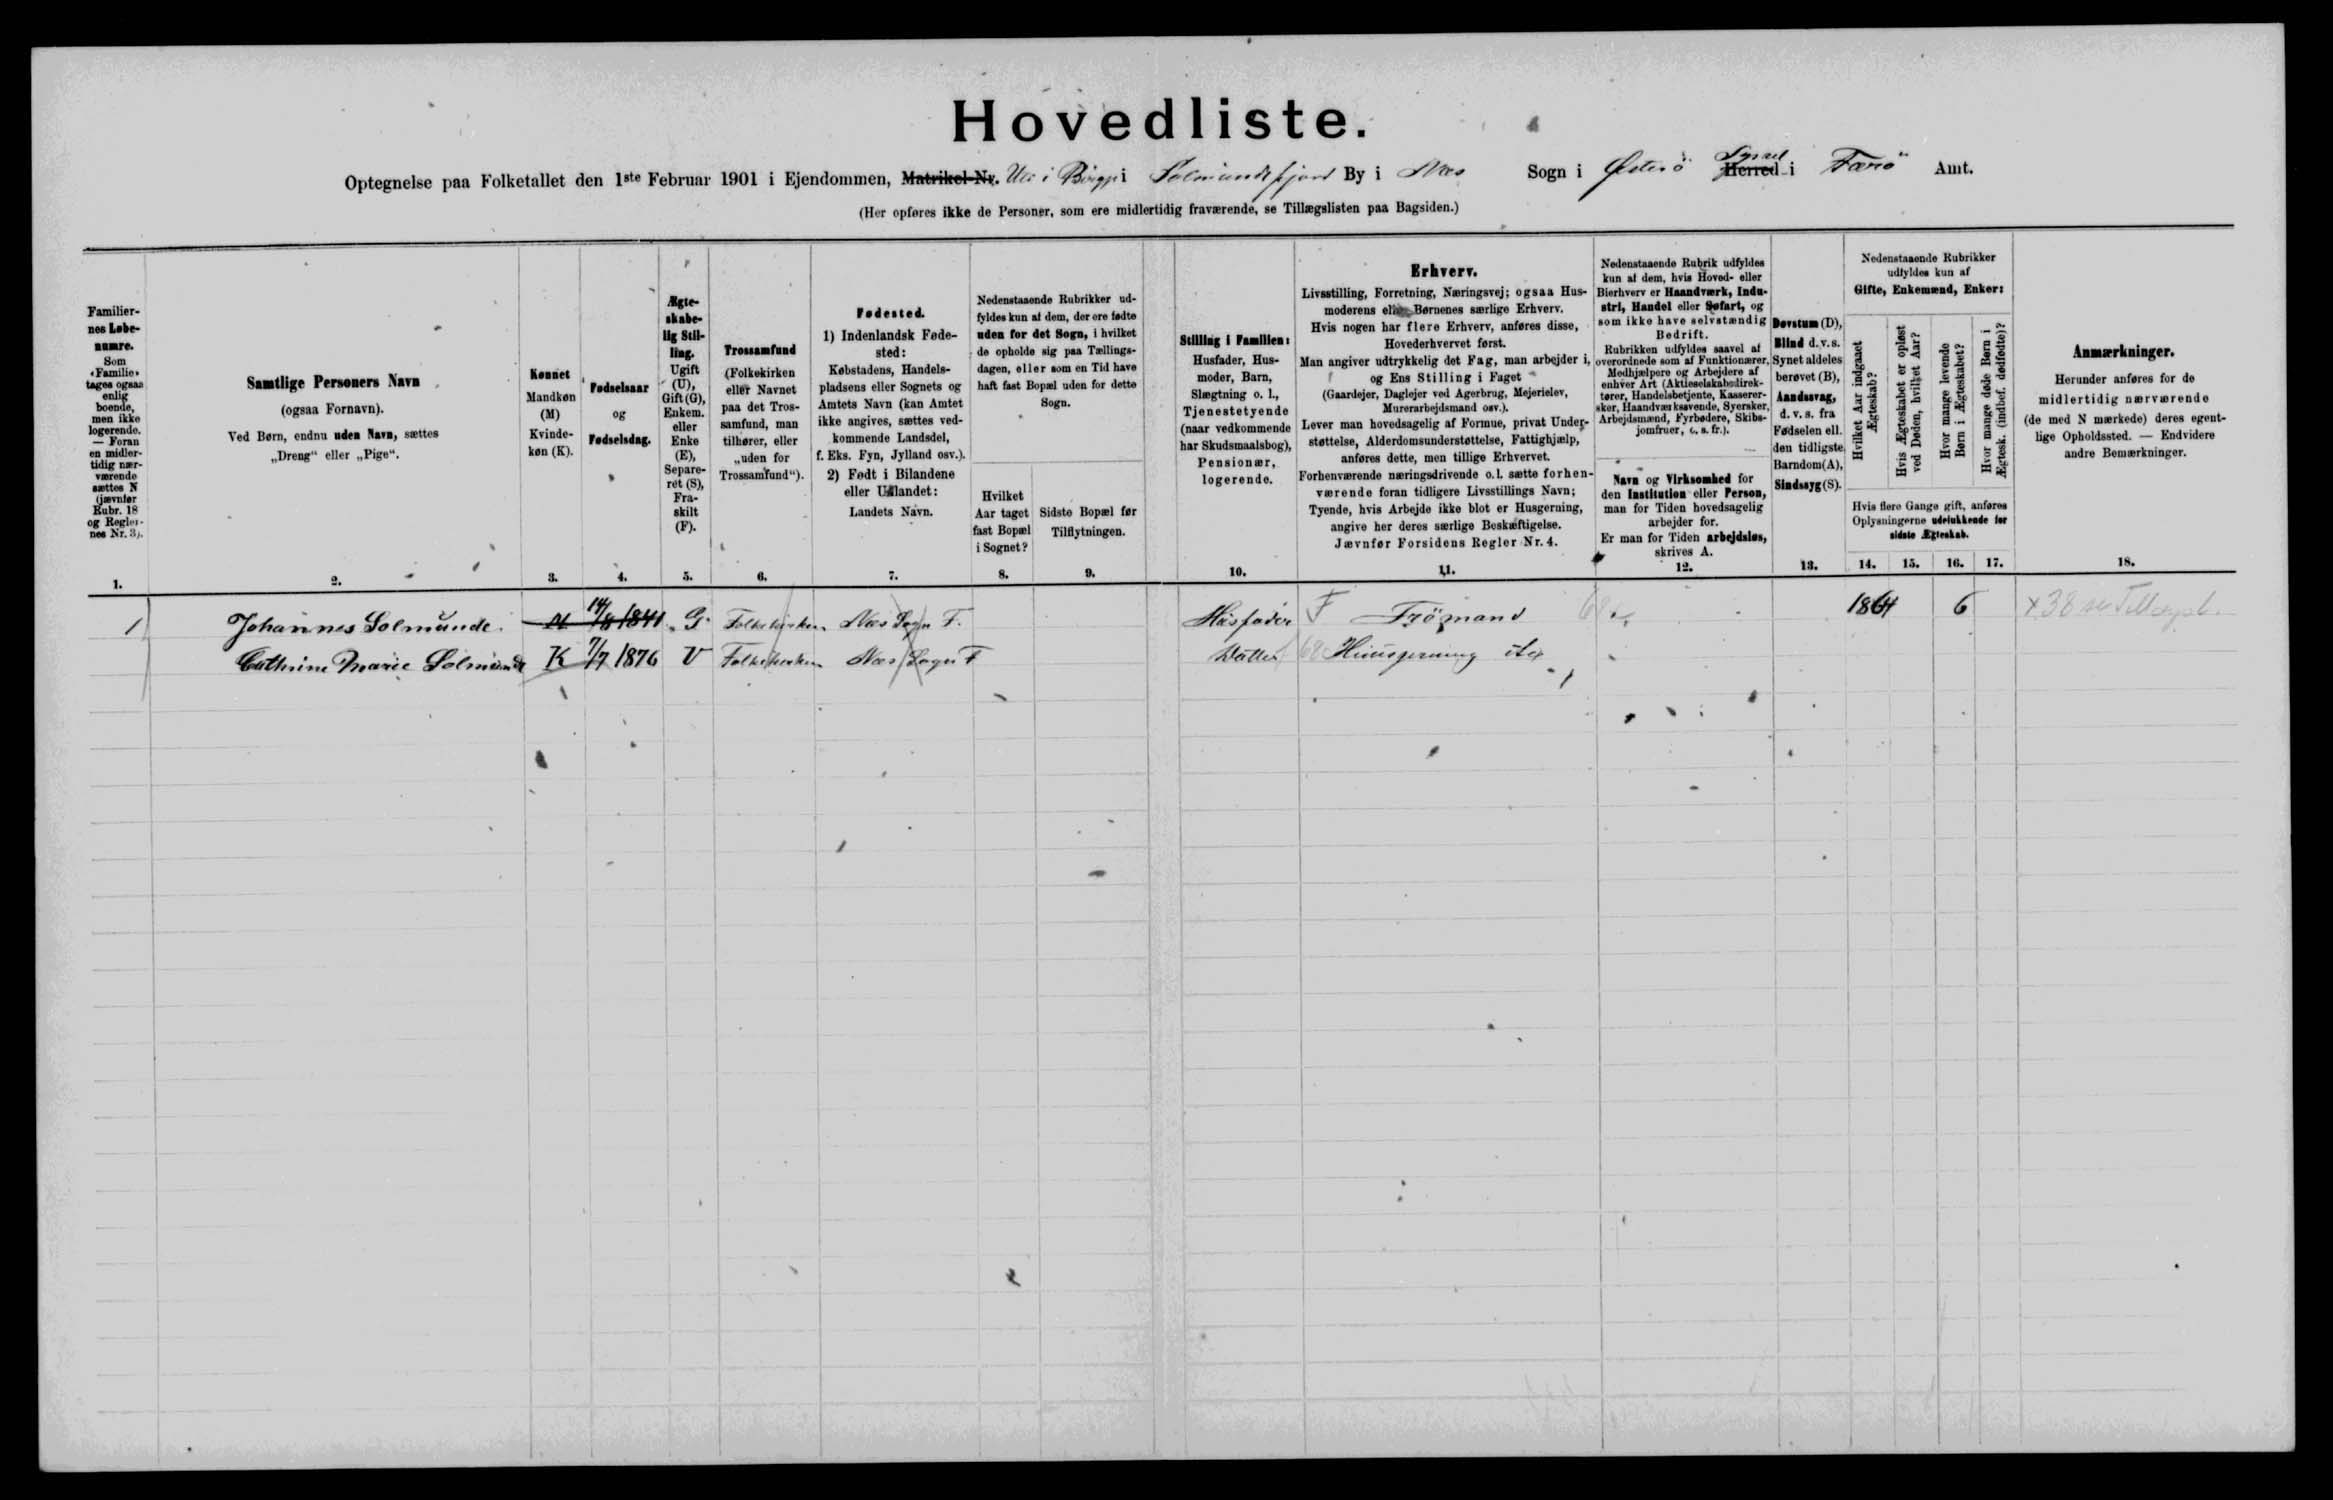 Hovedliste.
Optegnelse paa Folketallet den 1ste Februar 1901 i Ejendommen, Matrikel-Nr. i Solmundefjord By i Næs Sogn i Østerö Syssel Herred i Færö Amt.
(Her opføres ikke de Personer, som ere midlertidig fraværende, se Tillægslisten paa Bagsiden.)
Familier-
nes Løbe-
numre.
Som
«Familie»
tages ogsaa
enlig
boende,
men ikke
logerende.
— Foran
en midler-
tidig nær-
værende
sættes N
(jævnfør
Rubr. 18
og Regler-
nes Nr. 3).
Samtlige Personers Navn
(ogsaa Fornavn).
Ved Børn, endnu uden Navn, sættes
„Dreng“ eller „Pige“.
Kønnet
Mandkøn
(M)
Kvinde-
køn (K).
Fødselsaar
og
Fødselsdag.
Ægte-
skabe-
lig Stil-
ling.
Ugift
(U),
Gift (G),
Enkem.
eller
Enke
(E),
Separe-
ret (S),
Fra-
skilt
(F).
Trossamfund
(Folkekirken
eller Navnet
paa det Tros-
samfund, man
tilhører, eller
„uden for
Trossamfund“).
Fødested.
1) Indenlandsk Føde-
sted:
Købstadens, Handels-
pladsens eller Sognets og
Amtets Navn (kan Amtet
ikke angives, sættes ved-
kommende Landsdel,
f. Eks. Fyn, Jylland osv.).
2) Født i Bilandene
eller Udlandet:
Landets Navn.
Nedenstaaende Rubrikker ud-
fyldes kun af dem, der ere fødte
uden for det Sogn, i hvilket
de opholde sig paa Tællings-
dagen, eller som en Tid have
haft fast Bopæl uden for dette
Sogn.
Hvilket
Aar taget
fast Bopæl
i Sognet?
Sidste Bopæl før
Tilflytningen.
Stilling i Familien:
Husfader, Hus-
moder, Barn,
Slægtning o. l.,
Tjenestetyende
(naar vedkommende
har Skudsmaalsbog),
Pensionær,
logerende.
Erhverv.
Livsstilling, Forretning, Næringsvej; ogsaa Hus-
moderens eller Børnenes særlige Erhverv.
Hvis nogen har flere Erhverv, anføres disse,
Hovederhvervet først.
Man angiver udtrykkelig det Fag, man arbejder i,
og Ens Stilling i Faget
(Gaardejer, Daglejer ved Agerbrug, Mejerielev,
Murerarbejdsmand osv.).
Lever man hovedsagelig af Formue, privat Under-
støttelse, Alderdomsunderstøttelse, Fattighjælp,
anføres dette, men tillige Erhvervet.
Forhenværende næringsdrivende o.l. sætte forhen-
værende foran tidligere Livsstillings Navn;
Tyende, hvis Arbejde ikke blot er Husgerning,
angive her deres særlige Beskæftigelse.
Jævnfør Forsidens Regler Nr. 4.
Nedenstaaende Rubrik udfyldes
kun af dem, hvis Hoved- eller
Bierhverv er Haandværk, Indu-
stri, Handel eller Søfart, og
som ikke have selvstændig
Bedrift.
Rubrikken udfyldes saavel af
overordnede som af Funktionærer,
Medhjælpere og Arbejdere af
enhver Art (Aktieselskabsdirek-
tører, Handelsbetjente, Kasserer-
sker, Haandværkssvende, Syersker,
Arbejdsmænd, Fyrbødere, Skibs-
jomfruer, o. s. fr.).
Navn og Virksomhed for
den Institution eller Person,
man for Tiden hovedsagelig
arbejder for.
Er man for Tiden arbejdsløs,
skrives A.
Døvstum (D),
Blind d.v.s.
Synet aldeles
berøvet (B),
Aandssvag,
d. v. s. fra
Fødselen ell.
den tidligste
Barndom (A),
Sindssyg (S).
Nedenstaaende Rubrikker
udfyldes kun af
Gifte, Enkemænd, Enker:
Hvilket Aar indgaaet
Ægteskab?
Hvis Ægteskabet er opløst
ved Døden, hvilket Aar?
Hvor mange levende
Børn i Ægteskabet?
Hvor mange døde Børn i
Ægtesk. (indbef. dødfødte)?
Hvis flere Gange gift, anføres
Oplysningerne udelukkende for
sidste Ægteskab.
Anmærkninger.
Herunder anføres for de
midlertidig nærværende
(de med N mærkede) deres egent-
lige Opholdssted. — Endvidere
andre Bemærkninger.
1. 2. 3. 4. 5. 6. 7. 8. 9. 10. 11. 12. 13. 14. 15. 16. 17. 18.
1 Johannes Solmunde. M 14/8 1841 G. Folkekirken Næs Sogn F. Husfader F Trömand 1864 6
Cathrine Marie Solmunde K 7/7 1876 U Folkekirken Næs Sogn F Datter Huusgerning